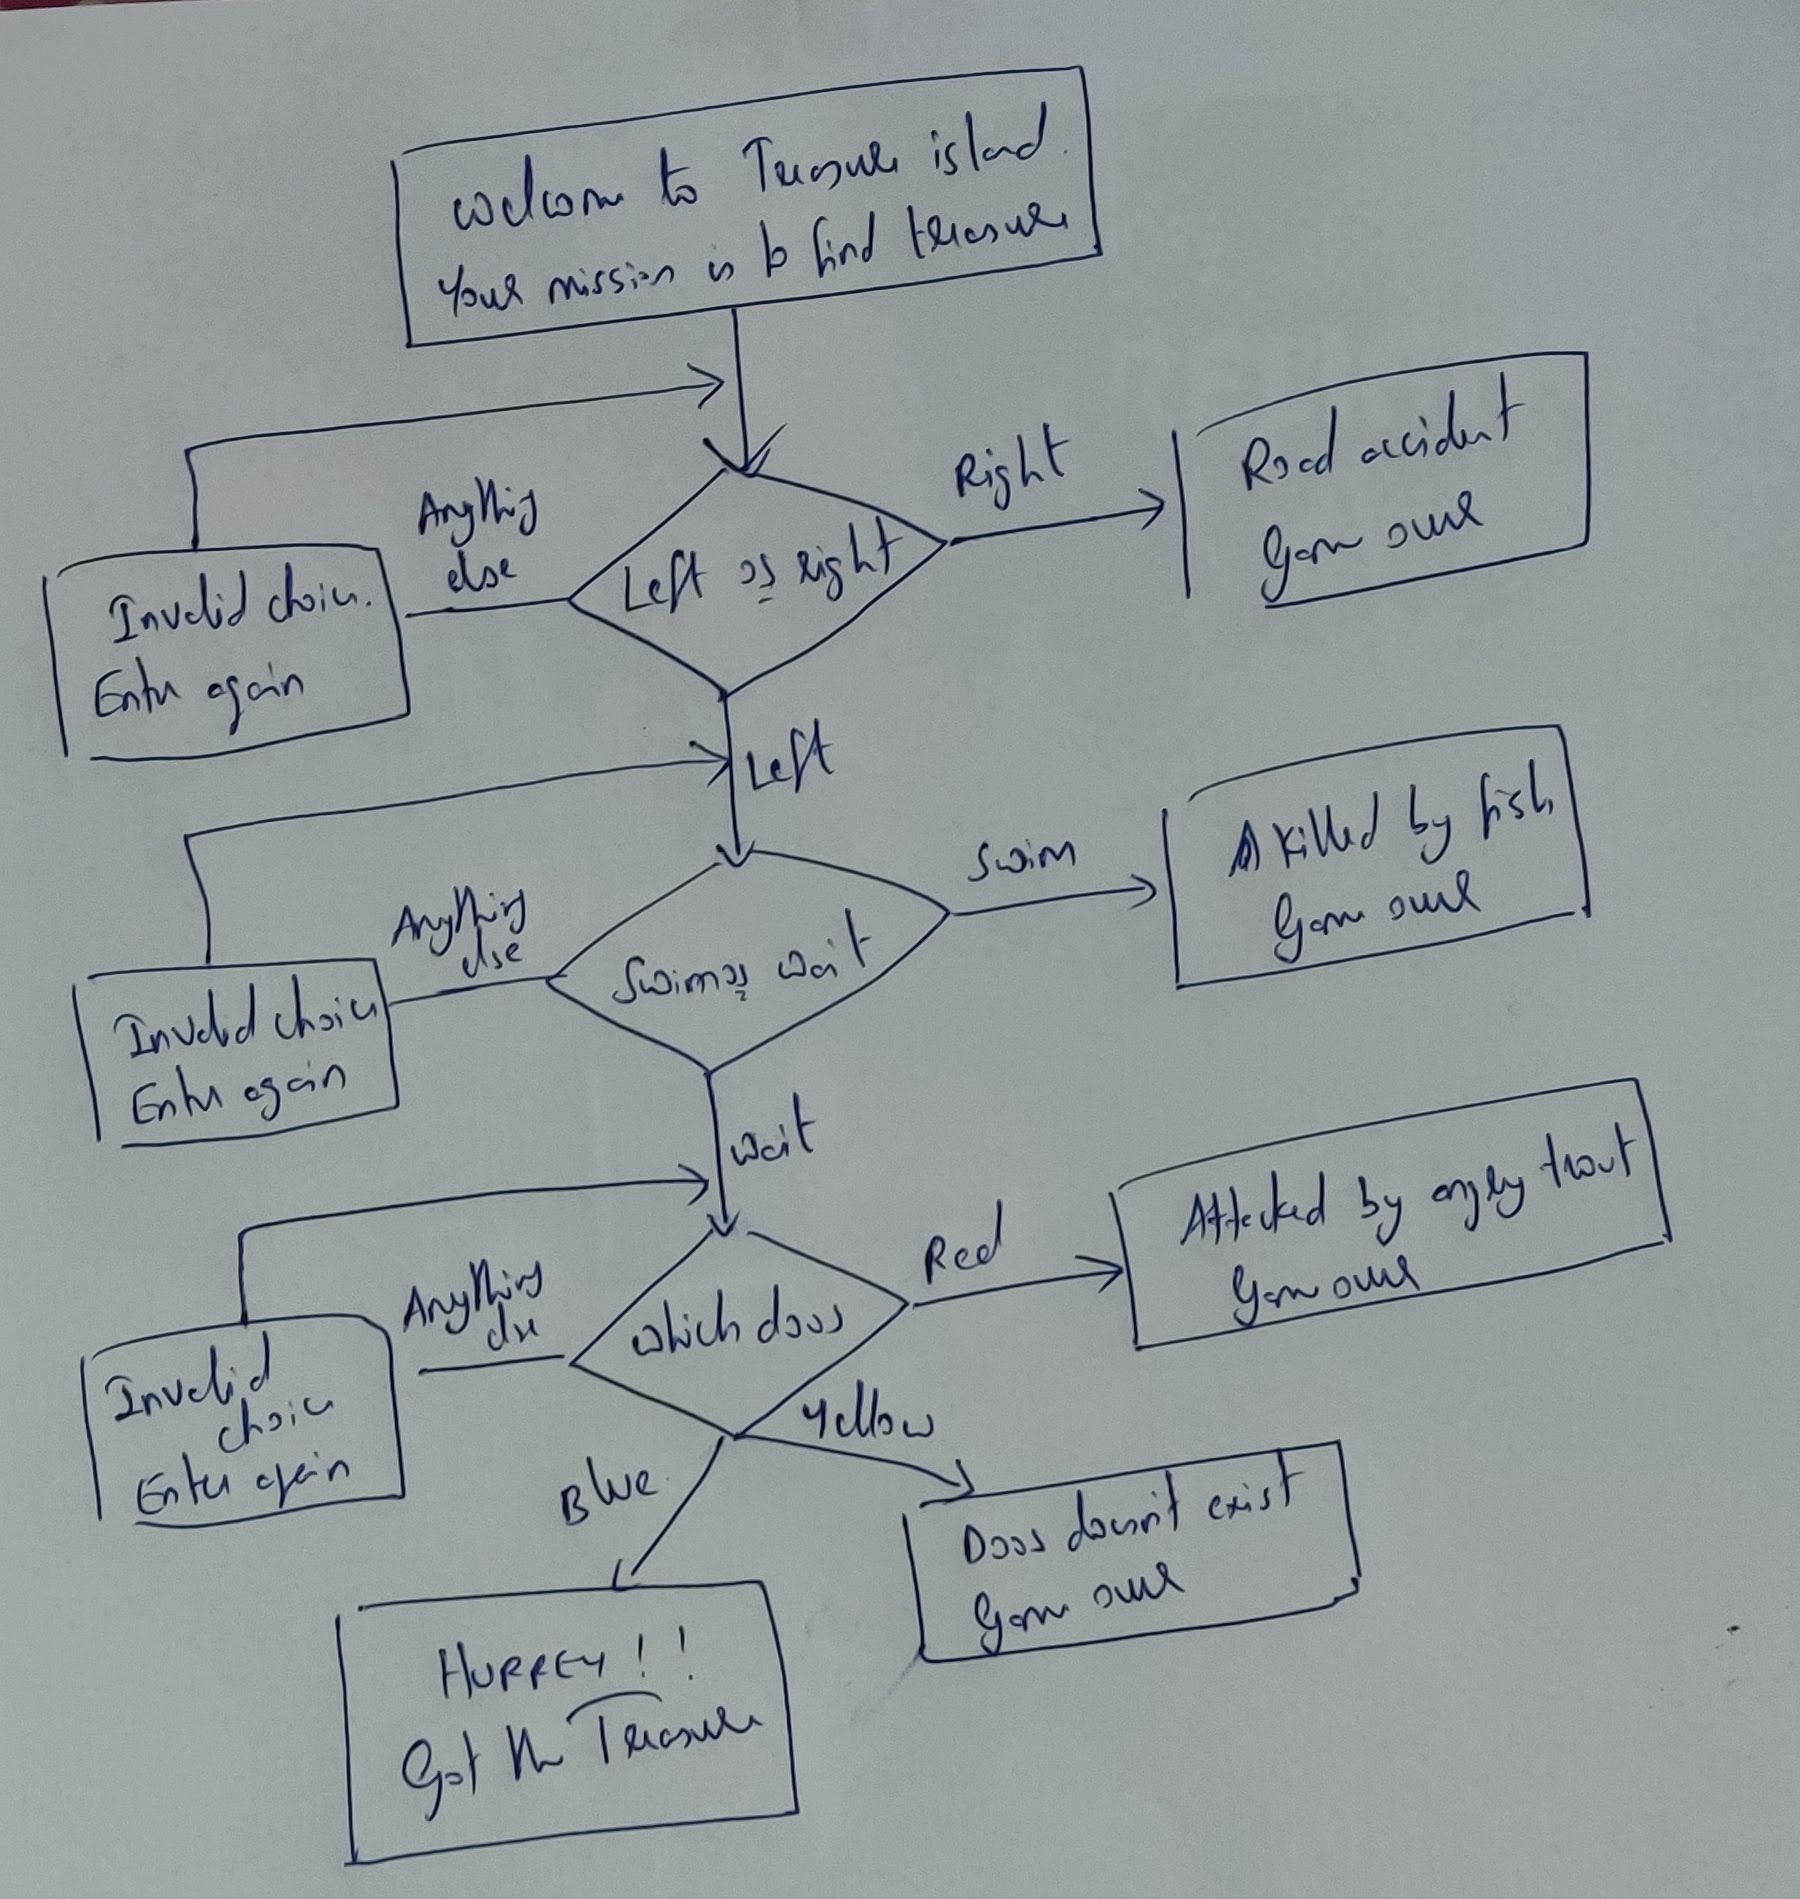 Welcome to Treasure island.
Your mission is to find treasure
Right
Road accident
Game over
Anything
else
Left or right
Invalid choice.
Enter again
Left
Swim
Killed by fish
Game over
Anything
else
Swim or wait
Invalid choice
Enter again
wait
Red
Attacked by angry trout
Game over
Anything
else
which door
Invalid
choice
Enter again
Yellow
Blue
Door doesn't exist
Game over
HURREY!!
Got the Treasure